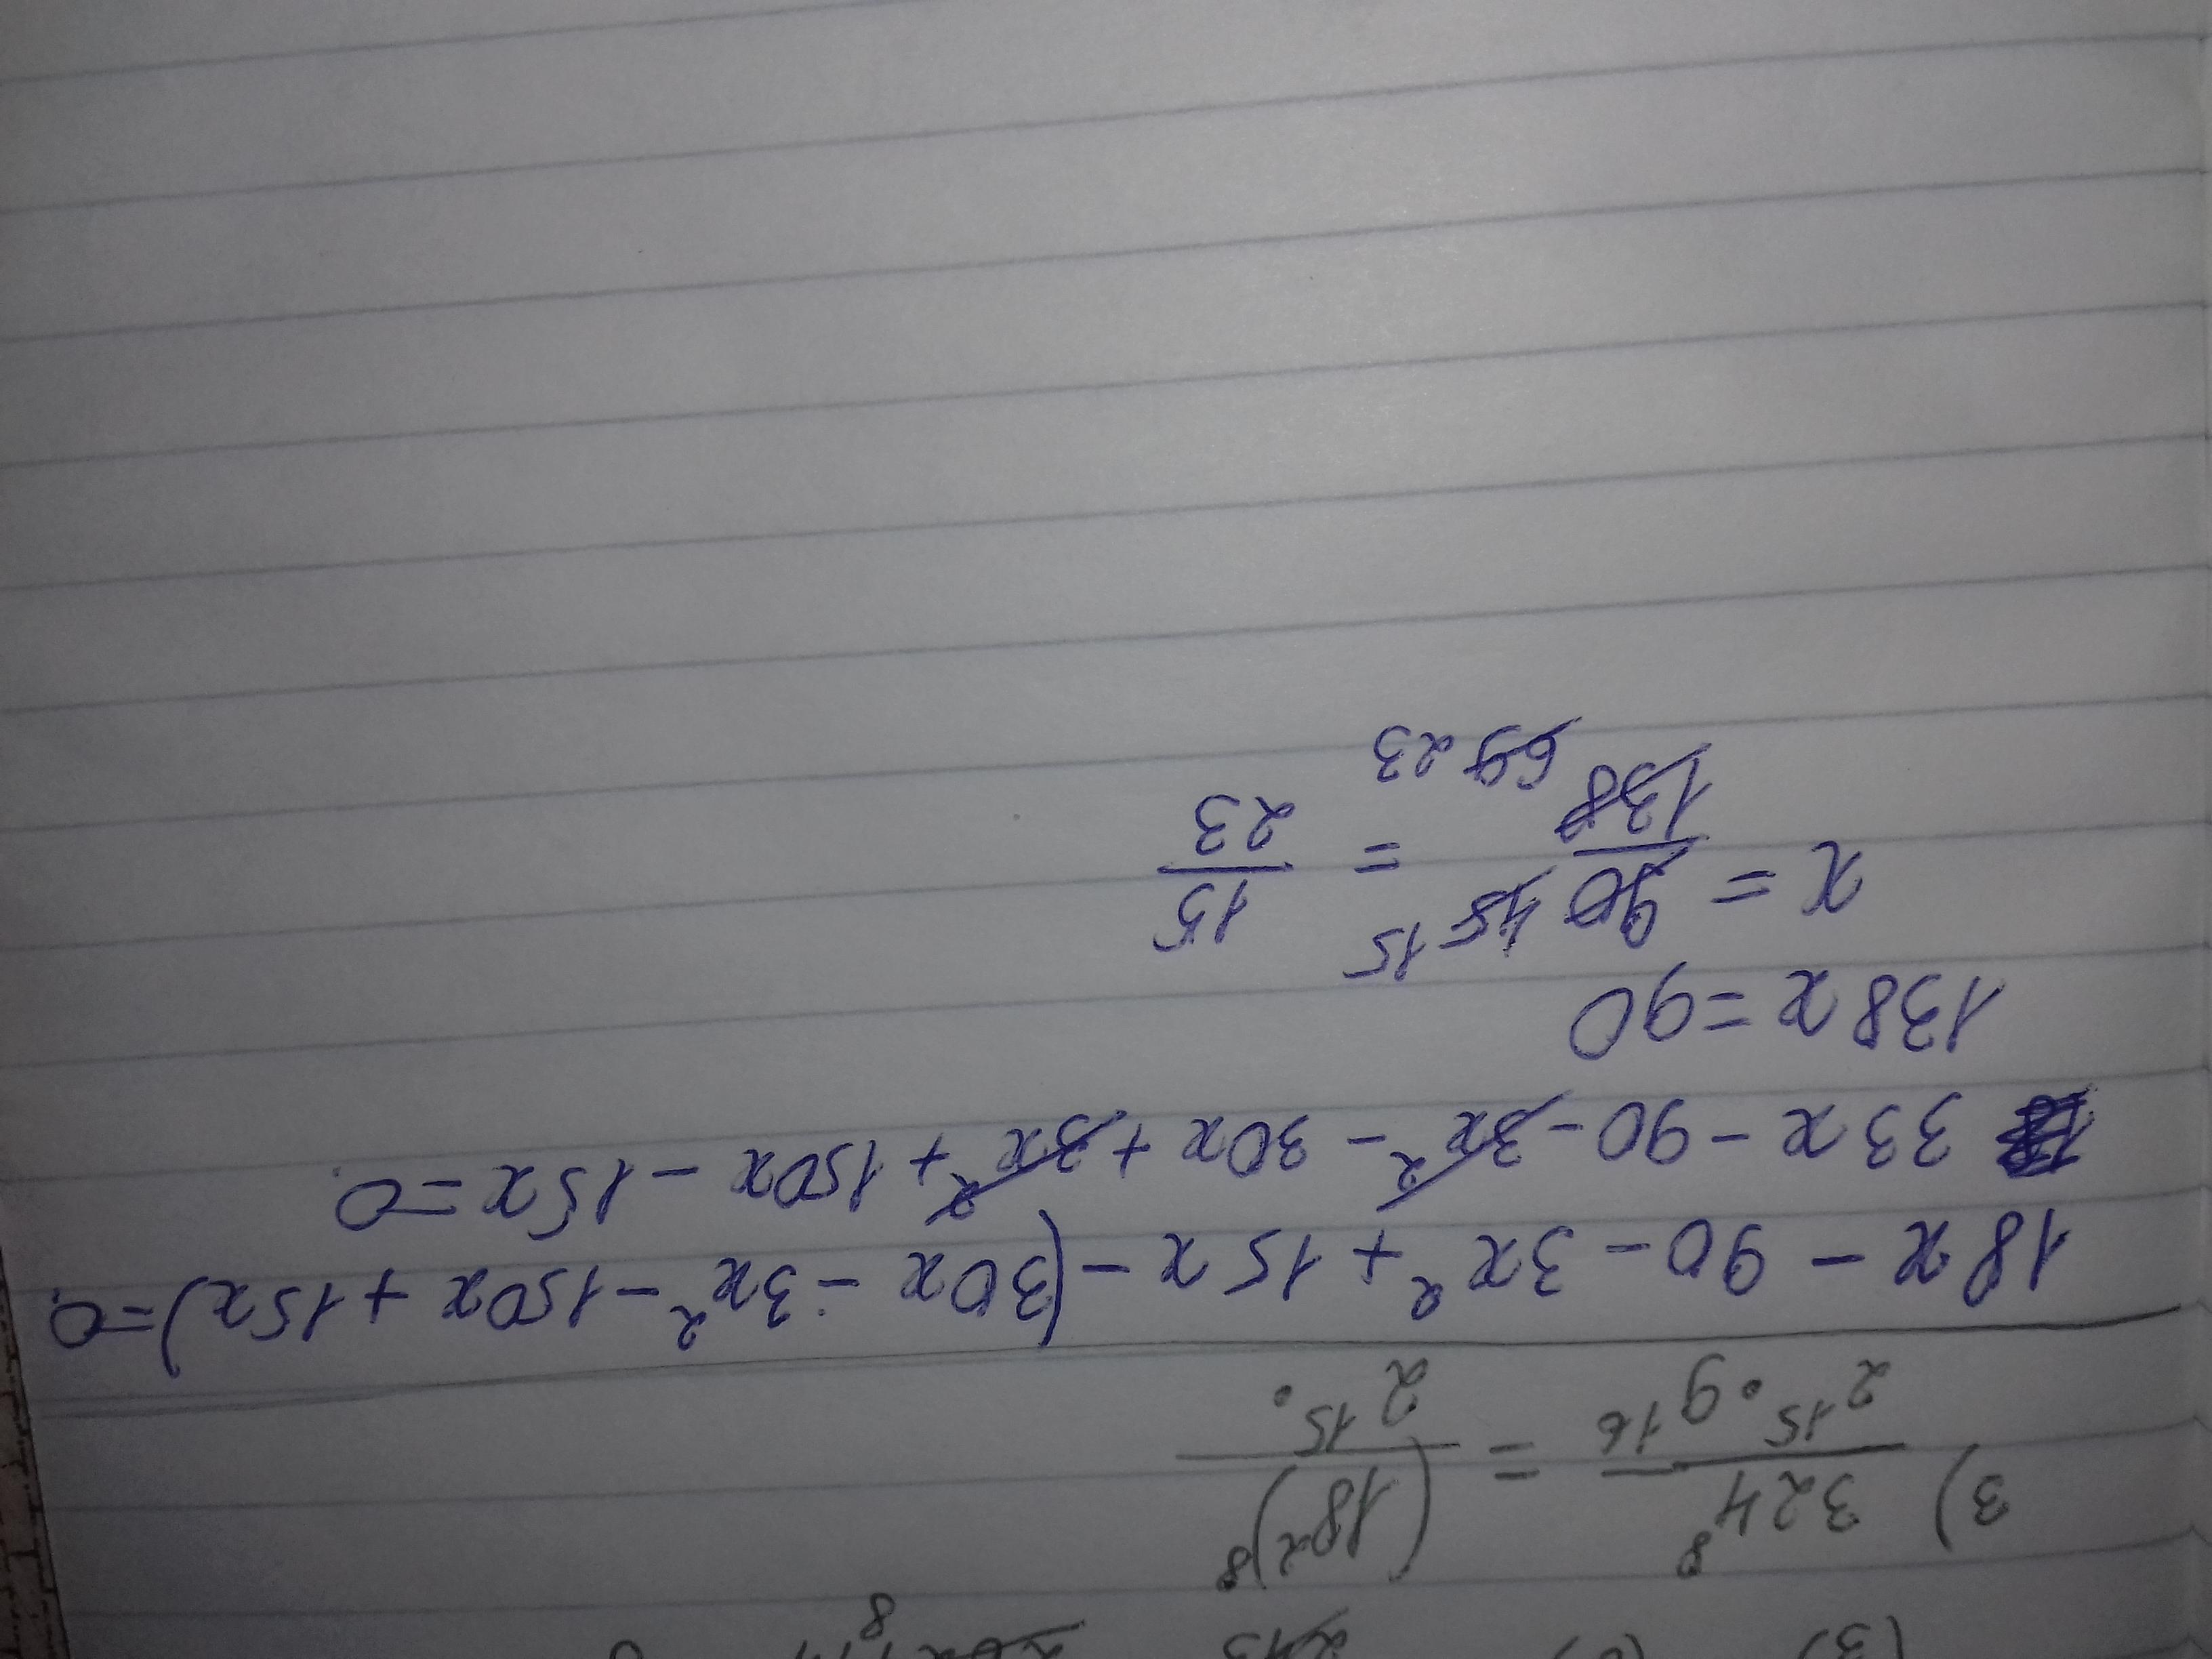 3) 324⁸ / 2¹⁵·9¹⁶ = (18²)⁸ / 2¹⁵·
18x - 90 - 3x² + 15x - (30x - 3x² - 150x + 15x) = 0.
33x - 90 - 3x² - 30x + 3x² + 150x - 15x = 0.
138x = 90
x = 90 45 15 / 138 69 23 = 15 / 23